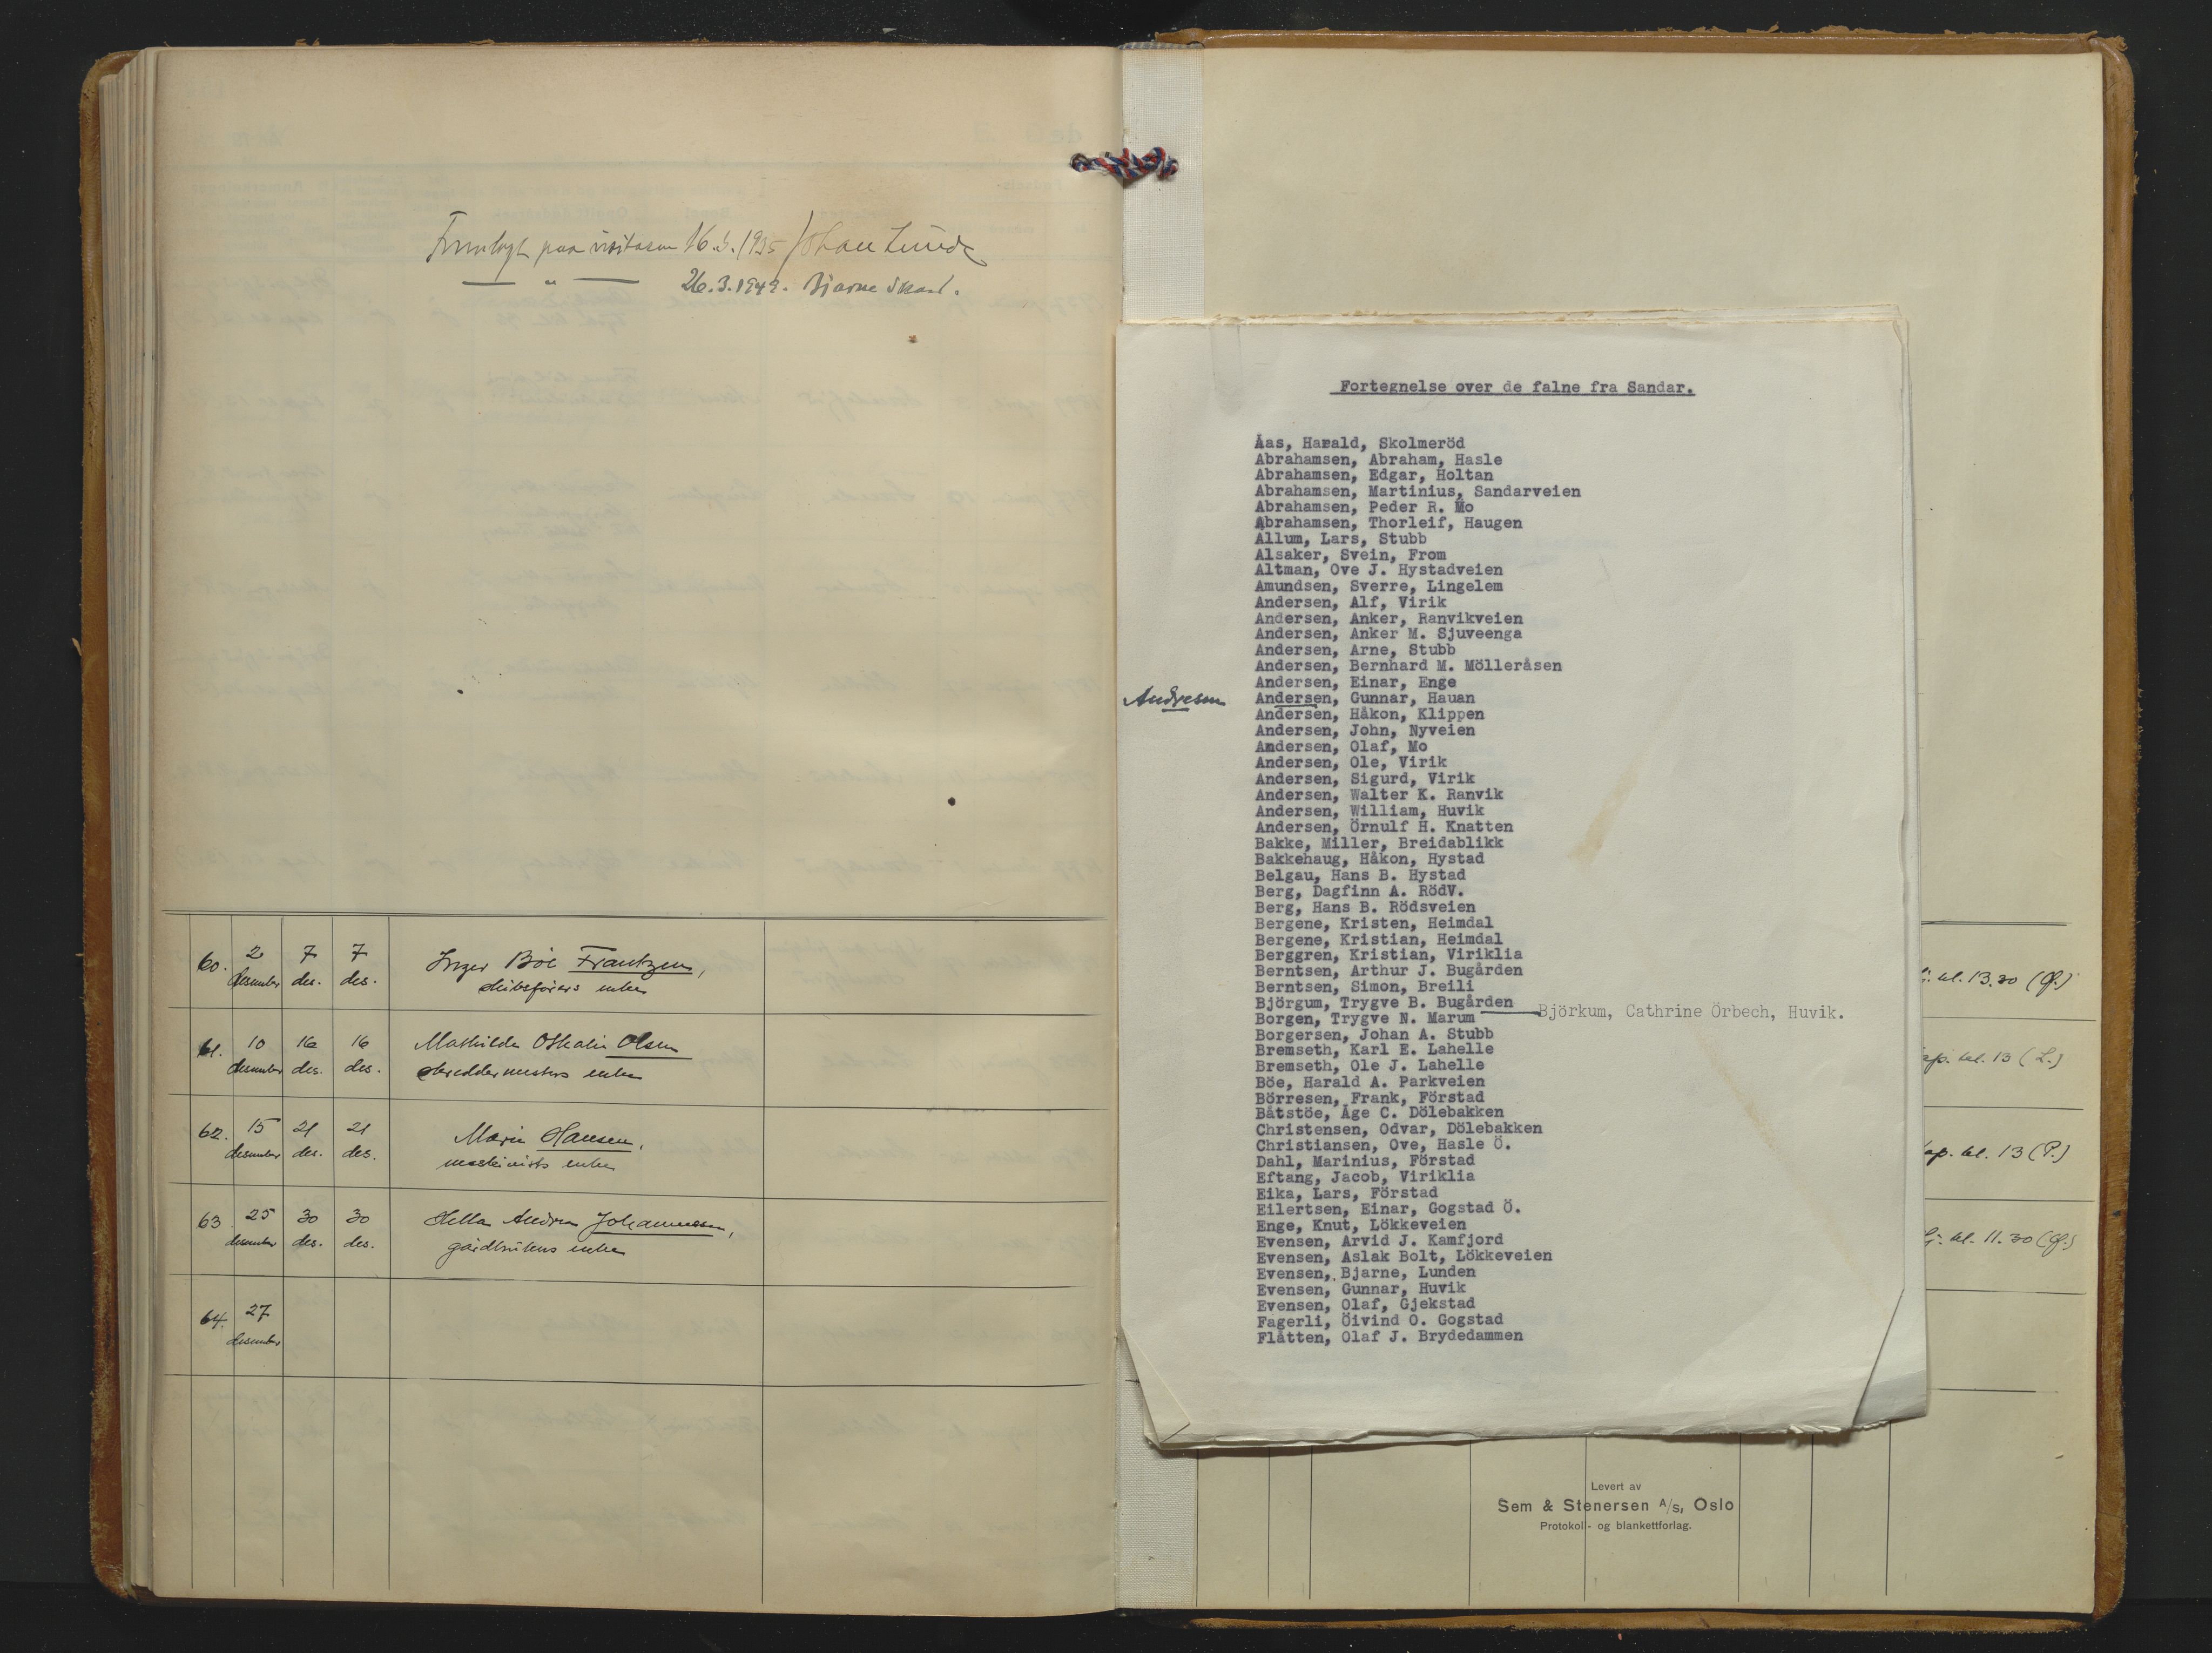 Fremlagt paa visitasen 16.3.1935 Johan Lunde
— " — 26.3.1949. Bjarne Skard.
60. 2 desember 7 des. 7 des. Inger Böe Frantzen,
skibsförers enke
61. 10 desember 16 des. 16 des. Mathilde Othalie Olsen
skreddermesters enke
62. 15 desember 21 des. 21 des. Marie Hansen,
maskinists enke
63 25 desember 30 des. 30 des. Hella Andrea Johannessen,
gårdbrukers enke
64. 27 desember
Fortegnelse over de falne fra Sandar.
Åas, Harald, Skolmeröd
Abrahamsen, Abraham, Hasle
Abrahamsen, Edgar, Holtan
Abrahamsen, Martinius, Sandarveien
Abrahamsen, Peder R. Mo
Abrahamsen, Thorleif, Haugen
Allum, Lars, Stubb
Alsaker, Svein, From
Altman, Ove J. Hystadveien
Amundsen, Sverre, Lingelem
Andersen, Alf, Virik
Andersen, Anker, Ranvikveien
Andersen, Anker M. Sjuveenga
Andersen, Arne, Stubb
Andersen, Bernhard M. Mölleråsen
Andersen, Einar, Enge
Andresen Andersen, Gunnar, Hauan
Andersen, Håkon, Klippen
Andersen, John, Nyveien
Andersen, Olaf, Mo
Andersen, Ole, Virik
Andersen, Sigurd, Virik
Andersen, Walter K. Ranvik
Andersen, William, Huvik
Andersen, Örnulf H. Knatten
Bakke, Miller, Breidablikk
Bakkehaug, Håkon, Hystad
Belgau, Hans B. Hystad
Berg, Dagfinn A. RödV.
Berg, Hans B. Rödsveien
Bergene, Kristen, Heimdal
Bergene, Kristian, Heimdal
Berggren, Kristian, Viriklia
Berntsen, Arthur J. Bugården
Berntsen, Simon, Breili
Björgum, Trygve B. Bugården
Björkum, Cathrine Örbech, Huvik.
Borgen, Trygve N. Marum
Borgersen, Johan A. Stubb
Bremseth, Karl E. Lahelle
Bremseth, Ole J. Lahelle
Böe, Harald A. Parkveien
Börresen, Frank, Förstad
Båtstöe, Åge C. Dölebakken
Christensen, Odvar, Dölebakken
Christiansen, Ove, Hasle Ö.
Dahl, Marinius, Förstad
Eftang, Jacob, Viriklia
Eika, Lars, Förstad
Eilertsen, Einar, Gogstad Ö.
Enge, Knut, Lökkeveien
Evensen, Arvid J. Kamfjord
Evensen, Aslak Bolt, Lökkeveien
Evensen,. Bjarne, Lunden
Evensen, Gunnar, Huvik
Evensen, Olaf, Gjekstad
Fagerli, Öivind O. Gogstad
Flåtten, Olaf J. Brydedammen
kl. 13.30 (G.)
ap. kl. 13 (L.)
ap. kl. 13 (P.)
kl. 11.30 (G.)
Levert av
Sem & Stenersen A/s, Oslo
Protokoll- og blankettforlag.